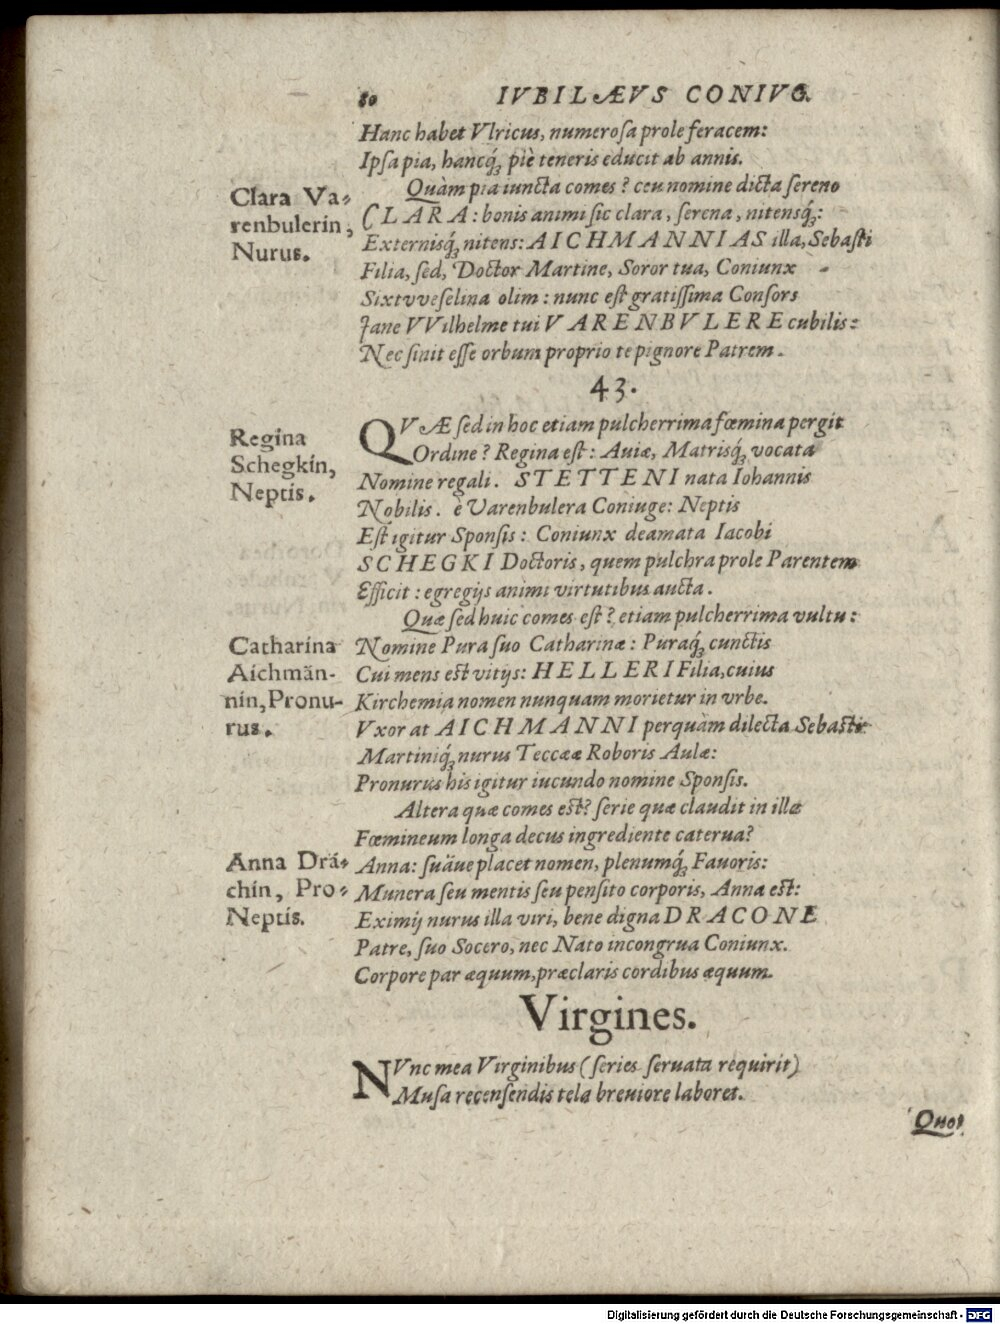 80 IVBILÆVS CONIVG.
Hanc habet Vlricus, numeroſa prole feracem:
Ipſa pia, hancq́; piè teneris educit ab annis.
Clara Va-
renbulerin,
Nurus.
Quàm pia iuncta comes? ceu nomine dicta ſereno
CLARA: bonis animi ſic clara, ſerena, nitensq́;:
Externisq́; nitens: AICHMANNIAS illa, Sebaſti
Filia, ſed, Doctor Martine, Soror tua, Coniunx
Sixtvveſelina olim: nunc eſt gratiſſima Conſors
Jane VVilhelme tui VARENBVLERE cubilis:
Nec ſinit eſſe orbum proprio te pignore Patrem.
43.
Regina
Schegkin,
Neptis.
QVÆ ſed in hoc etiam pulcherrima fœmina pergit
Ordine? Regina eſt: Auiæ, Matrisq́; vocata
Nomine regali. STETTENI nata Iohannis
Nobilis. è Varenbulera Coniuge: Neptis
Eſt igitur Sponſis: Coniunx deamata Iacobi
SCHEGKI Doctoris, quem pulchra prole Parentem
Efficit: egregijs animi virtutibus aucta.
Quæ ſed huic comes eſt? etiam pulcherrima vultu:
Catharina
Aichmãn-
nin, Pronu-
rus.
Nomine Pura ſuo Catharinæ: Puraq́; cunctis
Cui mens eſt vitijs: HELLERI Filia, cuius
Kirchemia nomen nunquam morietur in vrbe.
Vxor at AICHMANNI perquàm dilecta Sebaſti
Martiniq́; nurus Teccææ Roboris Aulæ:
Pronurus his igitur iucundo nomine Sponſis.
Altera quæ comes eſt? ſerie quæ claudit in illa
Fœmineum longa decus ingrediente caterua?
Anna Drá-
chin, Pro-
Neptis.
Anna: ſuäue placet nomen, plenumq́; Fauoris:
Munera ſeu mentis ſeu penſito corporis, Anna eſt:
Eximij nurus illa viri, bene digna DRACONE
Patre, ſuo Socero, nec Nato incongrua Coniunx.
Corpore par æquum, præclaris cordibus æquum.
Virgines.
NVnc mea Virginibus (ſeries ſeruata requirit)
Muſa recenſendis tela breuiore laboret.
Quot
Digitalisierung gefördert durch die Deutsche Forschungsgemeinschaft - DFG